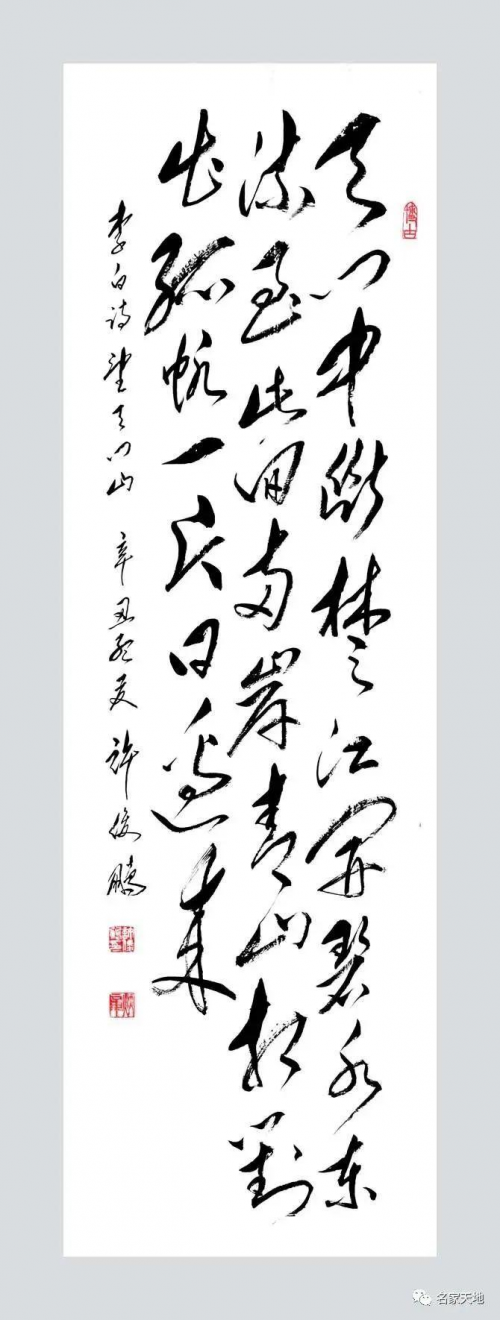 天门中断楚江開碧水东
流至此回两岸青山相對
出孤帆一片日边来
李白诗望天门山 辛丑夏 许俊鹏
名家天地